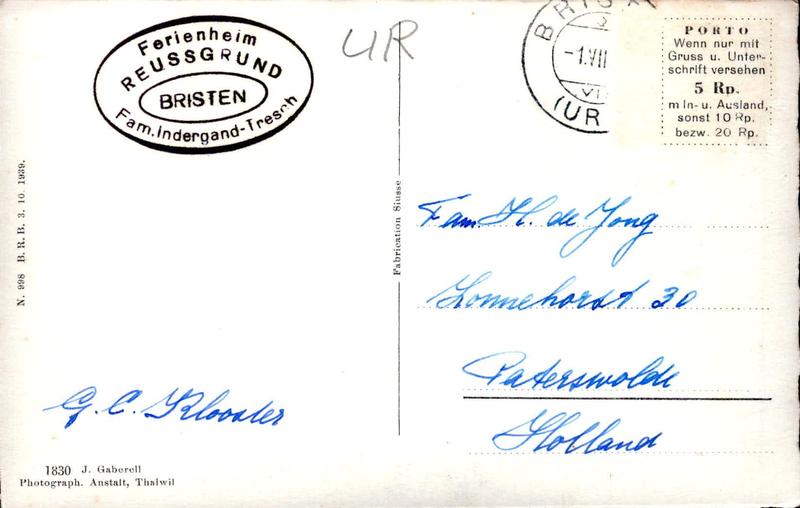 Ferienheim
REUSSGRUND
BRISTEN
Fam. Indergand-Tresch
UR
-1.VII
(UR
PORTO
Wenn nur mit
Gruss u. Unter-
schrift versehen
5 Rp.
m In- u. Ausland,
sonst 10 Rp.
bezw. 20 Rp.
N. 998 B. R. B. 3. 10. 1939.
Fabrication Suisse
Fam. H. de Jong
Zonnehorst 30
Paterswolde
Holland
G. C. Klooster
1830 J. Gaberell
Photograph. Anstalt, Thalwil